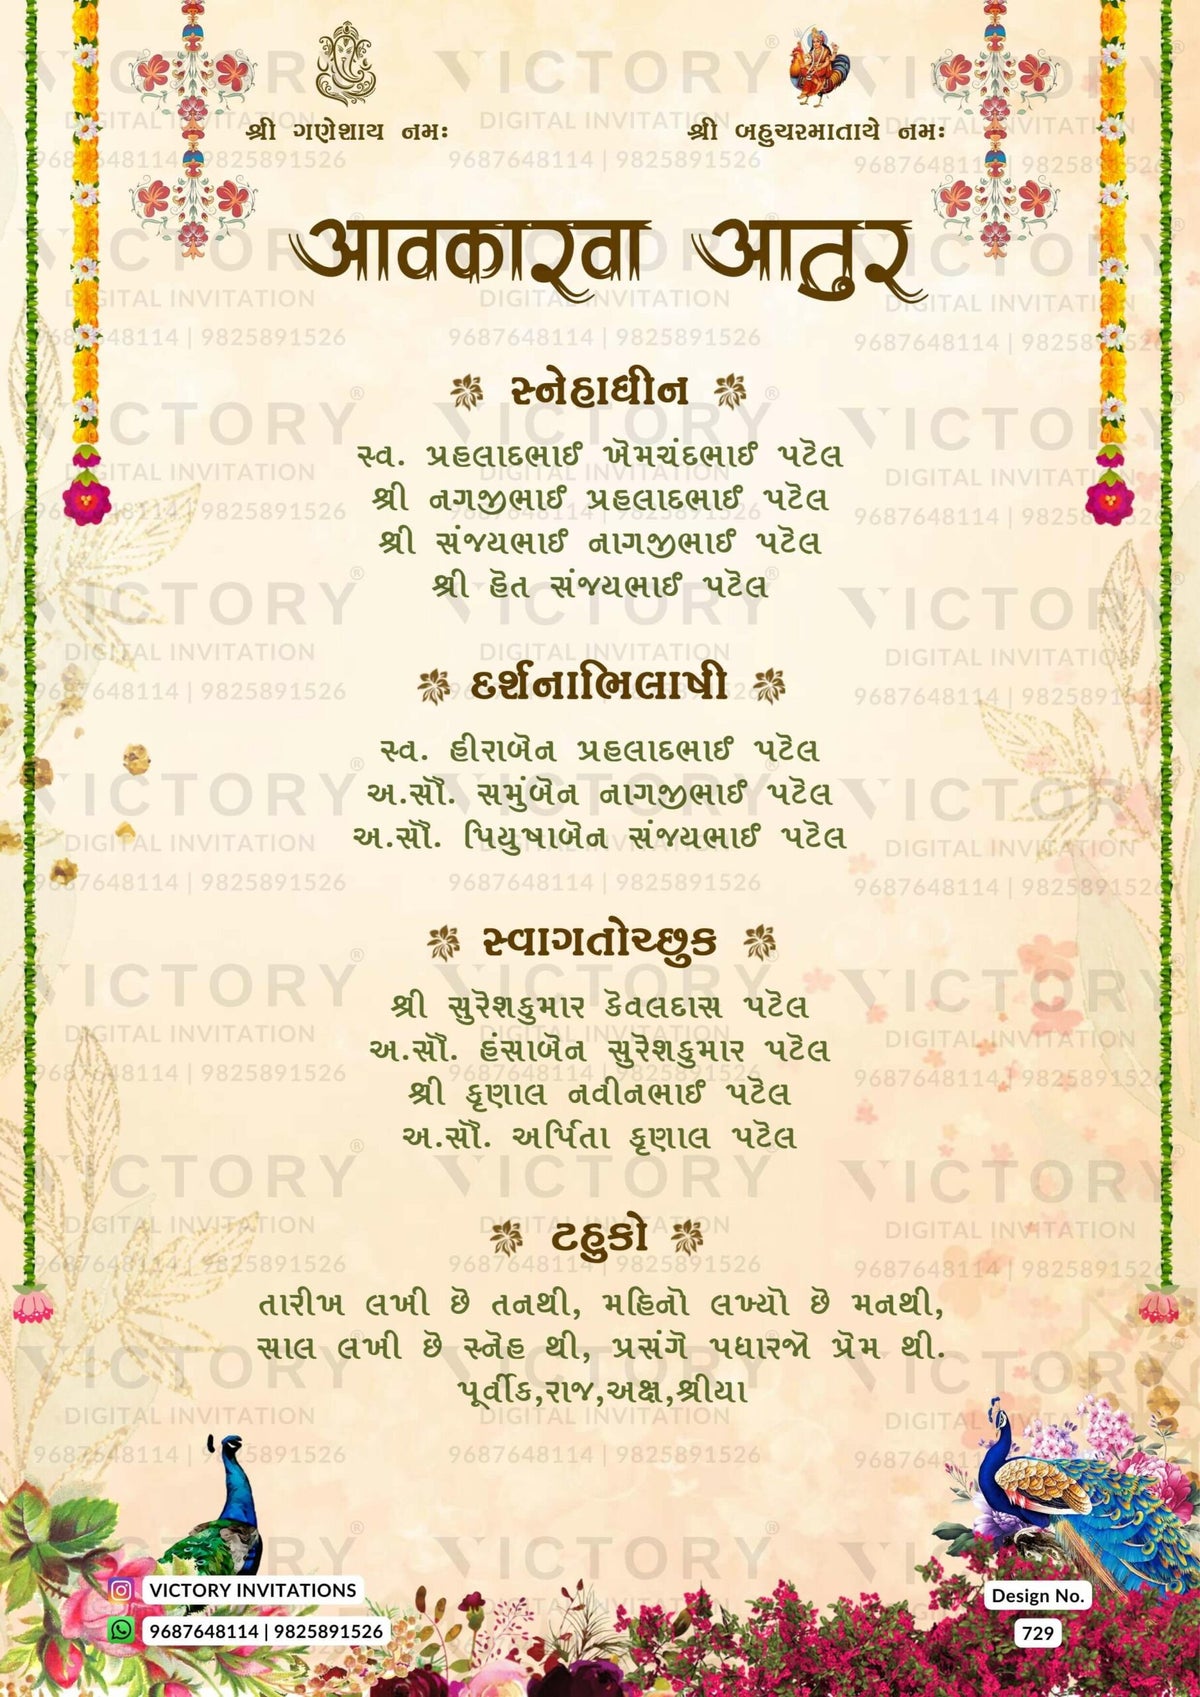 श्री ગણેશાય નમઃ
શ્રી બહુચરમાતાયે નમઃ
आवकारवा आतुर
સ્નેહાધીન
સ્વ. પ્રહલાદભાઈ ખેમચંદભાઈ પટેલ
શ્રી નગજીભાઈ પ્રહલાદભાઈ પટેલ
શ્રી સંજયભાઈ નાગજીભાઈ પટેલ
શ્રી હેત સંજયભાઈ પટેલ
દર્શનાભિલાષી
સ્વ. હીરાબેન પ્રહલાદભાઈ પટેલ
અ.સૌ. સમુંબેન નાગજીભાઈ પટેલ
અ.સૌ. પિયુષાબેન સંજયભાઈ પટેલ
સ્વાગતોચ્છુક
શ્રી સુરેશકુમાર કેવલદાસ પટેલ
અ.સૌ. હંસાબેન સુરેશકુમાર પટેલ
શ્રી કૃણાલ નવીનભાઈ પટેલ
અ.સૌ. અર્પિતા કૃણાલ પટેલ
ટહુકો
તારીખ લખી છે તનથી, મહિનો લખ્યો છે મનથી,
સાલ લખી છે સ્નેહ થી, પ્રસંગે પધારજો પ્રેમ થી.
પૂર્વીક,રાજ,અક્ષ,શ્રીયા
VICTORY INVITATIONS
9687648114 | 9825891526
Design No.
729
VICTORY
DIGITAL INVITATION
9687648114 | 9825891526